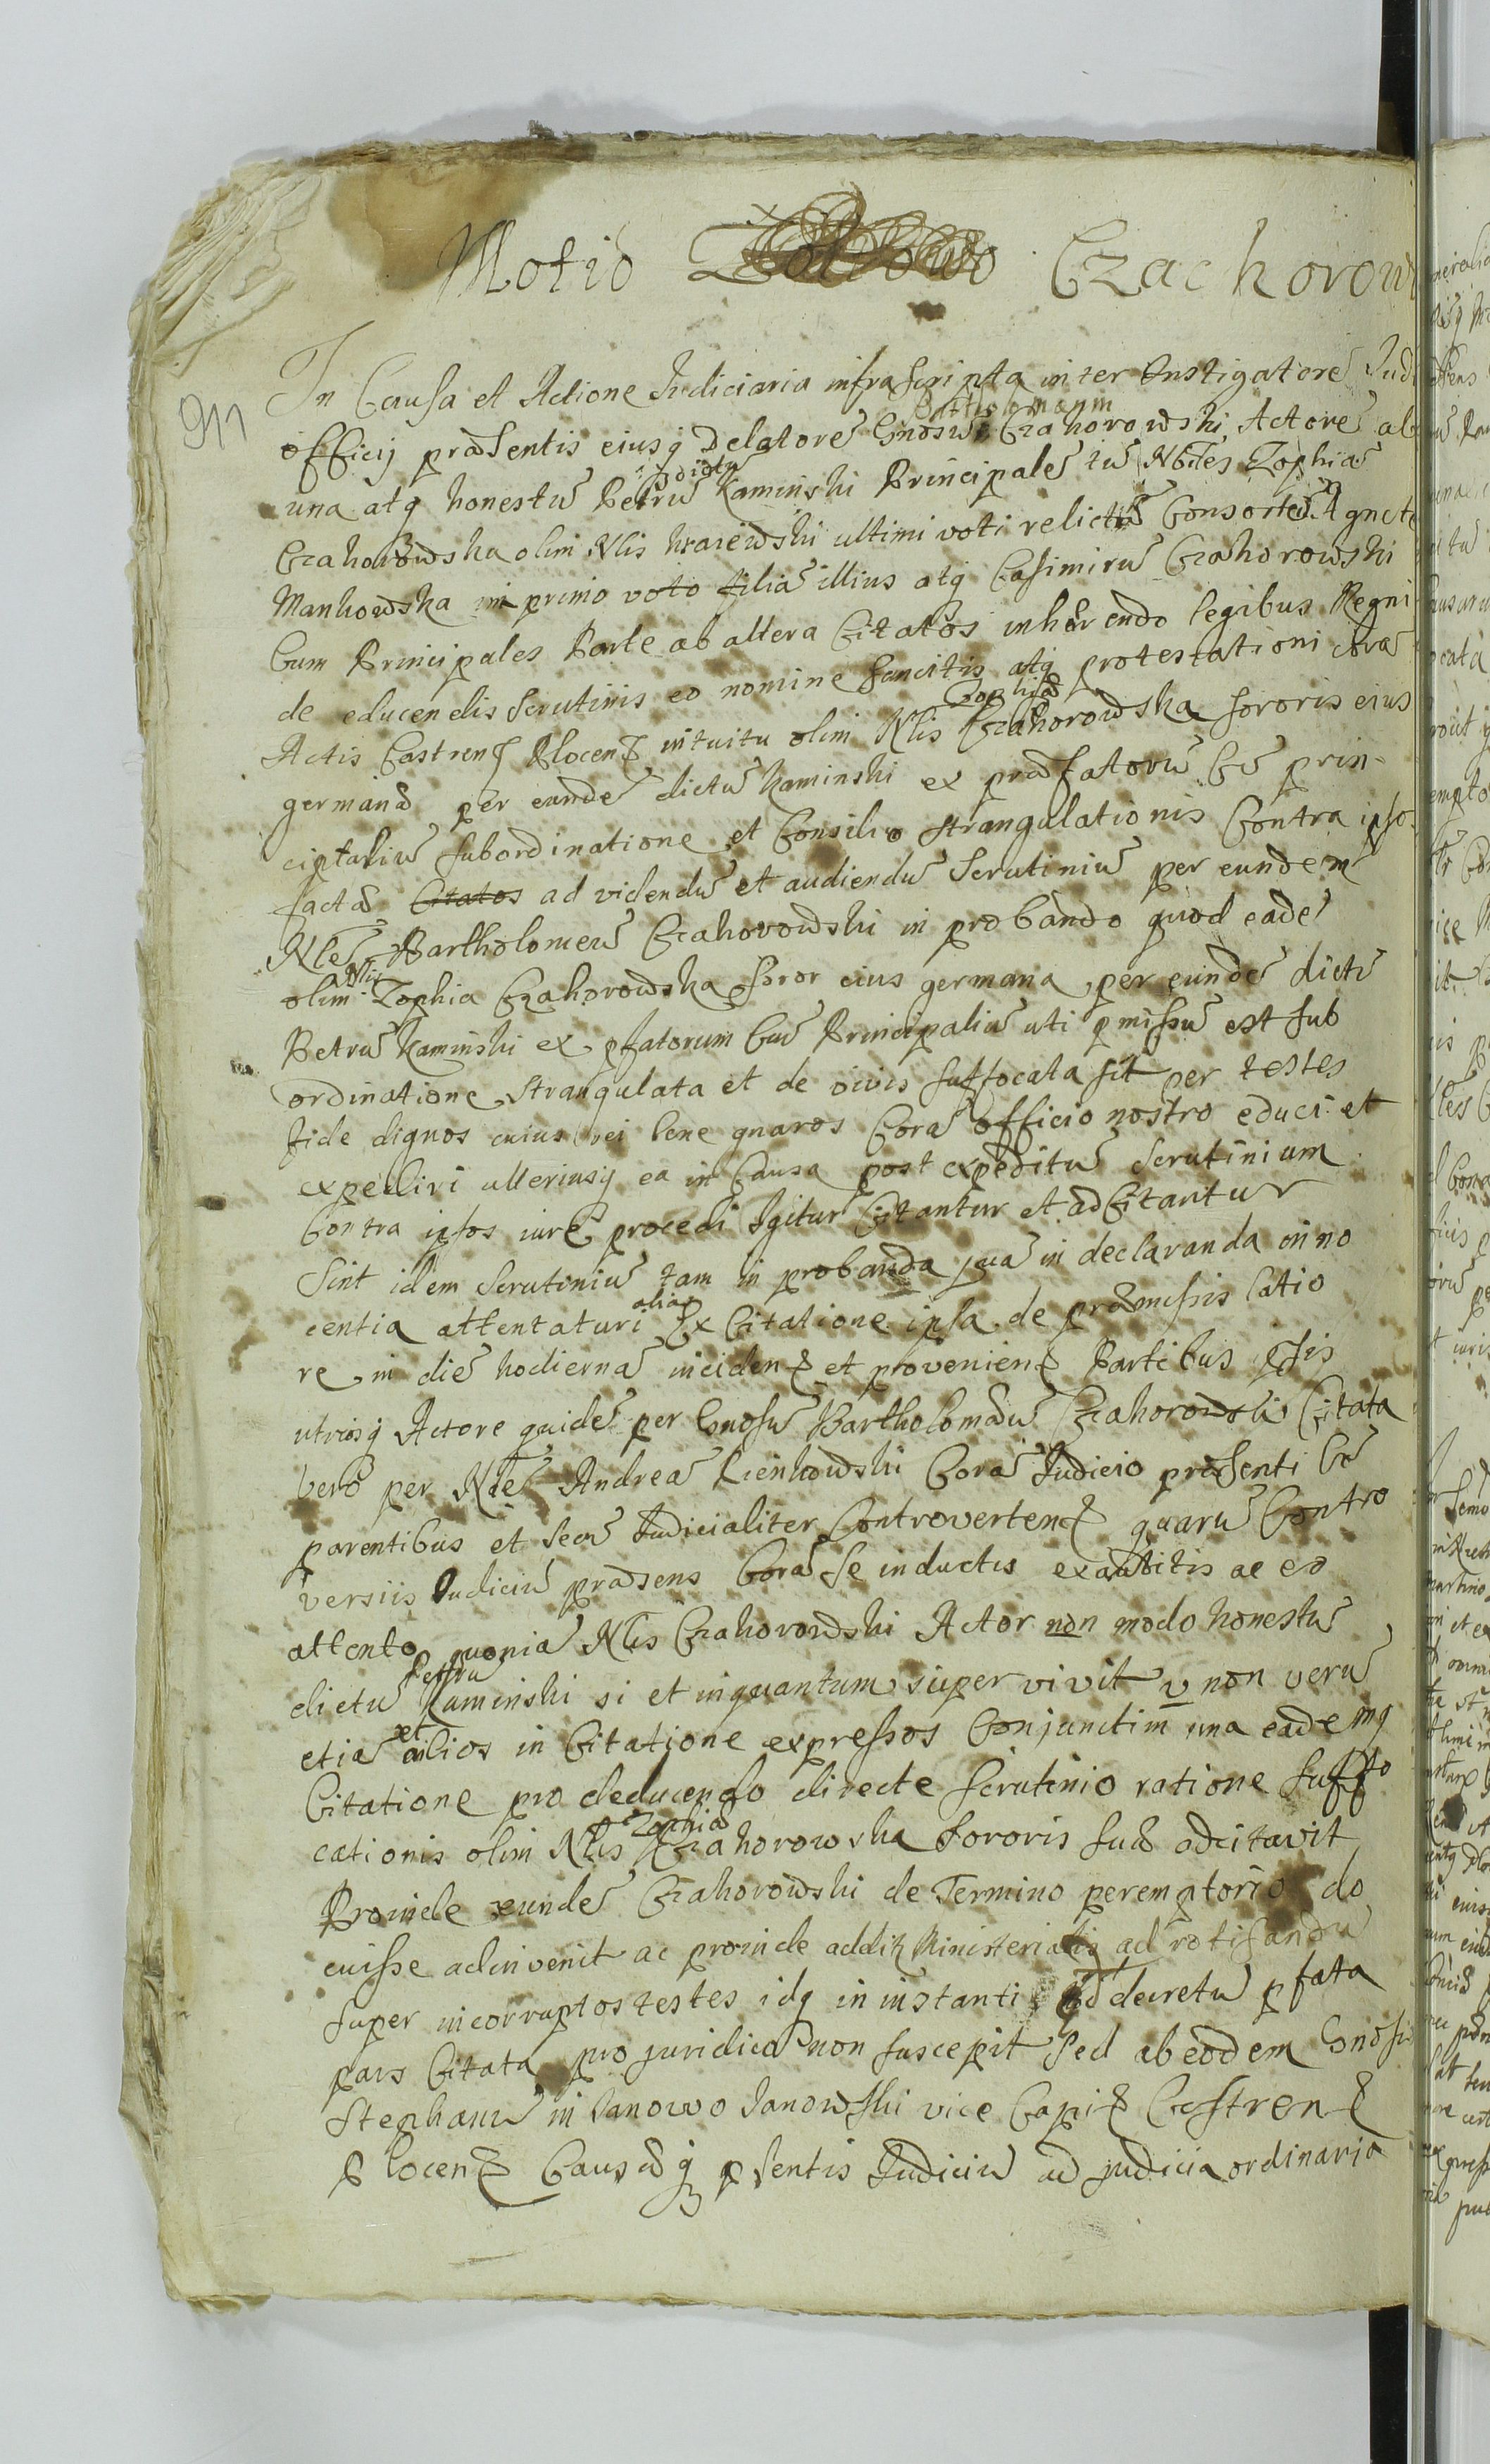 Motio Czachorow
911
In Causa et Actione Judiciaria infrascripta inter Instigatore Judi
officij præsentis eiusq Delatore Gnosu Bartholomæum Czahorowski Actore ab
una atq honestu Petru Kaminski Principale tu Nbiles Zophia
Czahorowska olim Nlis Kraiewski ultimi voti relicta Consorte Agnete
Mankowska primo voto filia illius atq Casimiru Czahorowski
Cum Principales Parte ab altera Citatos inhærendo legibus Regni
de educendis Scrutiniis eo nomine Sancitis atq protestationi cora
Actis Castren Plocen intuitu olim Nlis Zophiæ Czahorowska sororis eius
germanæ per eunde dictu Kaminski ex præfatoru Co prin-
cipaliu subordinatione et Consilio strangulationis Contra ipso
factæ Citatos ad videndu et audiendu Scrutiniu per eundem
Nle Bartholomeu Czahorowski in probando quod eade
olim Nlis Zophia Czahorowska Soror eius germana per eunde dictu
Petru Kaminski ex pfatorum Cu Principaliu uti pmissu est sub
ordinatione strangulata et de vivis suffocata sit per testes
fide dignos cuius rei bene gnaros Cora officio nostro educi et
expediri ulteriusq ea in Causa post expeditu Scrutinium
Contra ipsos iure procedi Igitur Citantur et adCitantur
Sint idem Scrutiniu tam in probanda qua in declaranda inno
centia attentaturi alias Ex Citatione ipsa de præmissis latio
re in die hodierna inciden et provenien Partibus psis
utrisq Actore quide per Gnosu Bartholomæu Czahorowski Citata
vero per Nle Andrea Lienkowski Cora Judicio præsenti Co
parentibus et Secu Judicialiter Controverten quaru Contro
versiis Judiciu præsens Cora se inductis exauditis ac eo
attento quonia Nlis Czahorowski Actor non modo honestu
dictu Petru Kaminski si et inquantum super vivit v non veru
etia et alios in Citatione expressos Conjunctim una eademq
Citatione pro deducendo directe Scrutinio ratione suffo
cationis olim Nlis Zophiæ Czahorowska Sororis suæ adcitavit
Proinde eunde Czahorowski de Termino peremptorio do
cuisse adinvenit ac proinde addit Ministerialis ad rotisandu
super incorruptos testes idq in instanti decretu pfata
pars Citata pro juridico non suscepit Sed ab eodem Gnosu
Stephanu in Janowo Janowski vice Capi Castren
Plocen Causæq psentis Judiciu ad judicia ordinaria